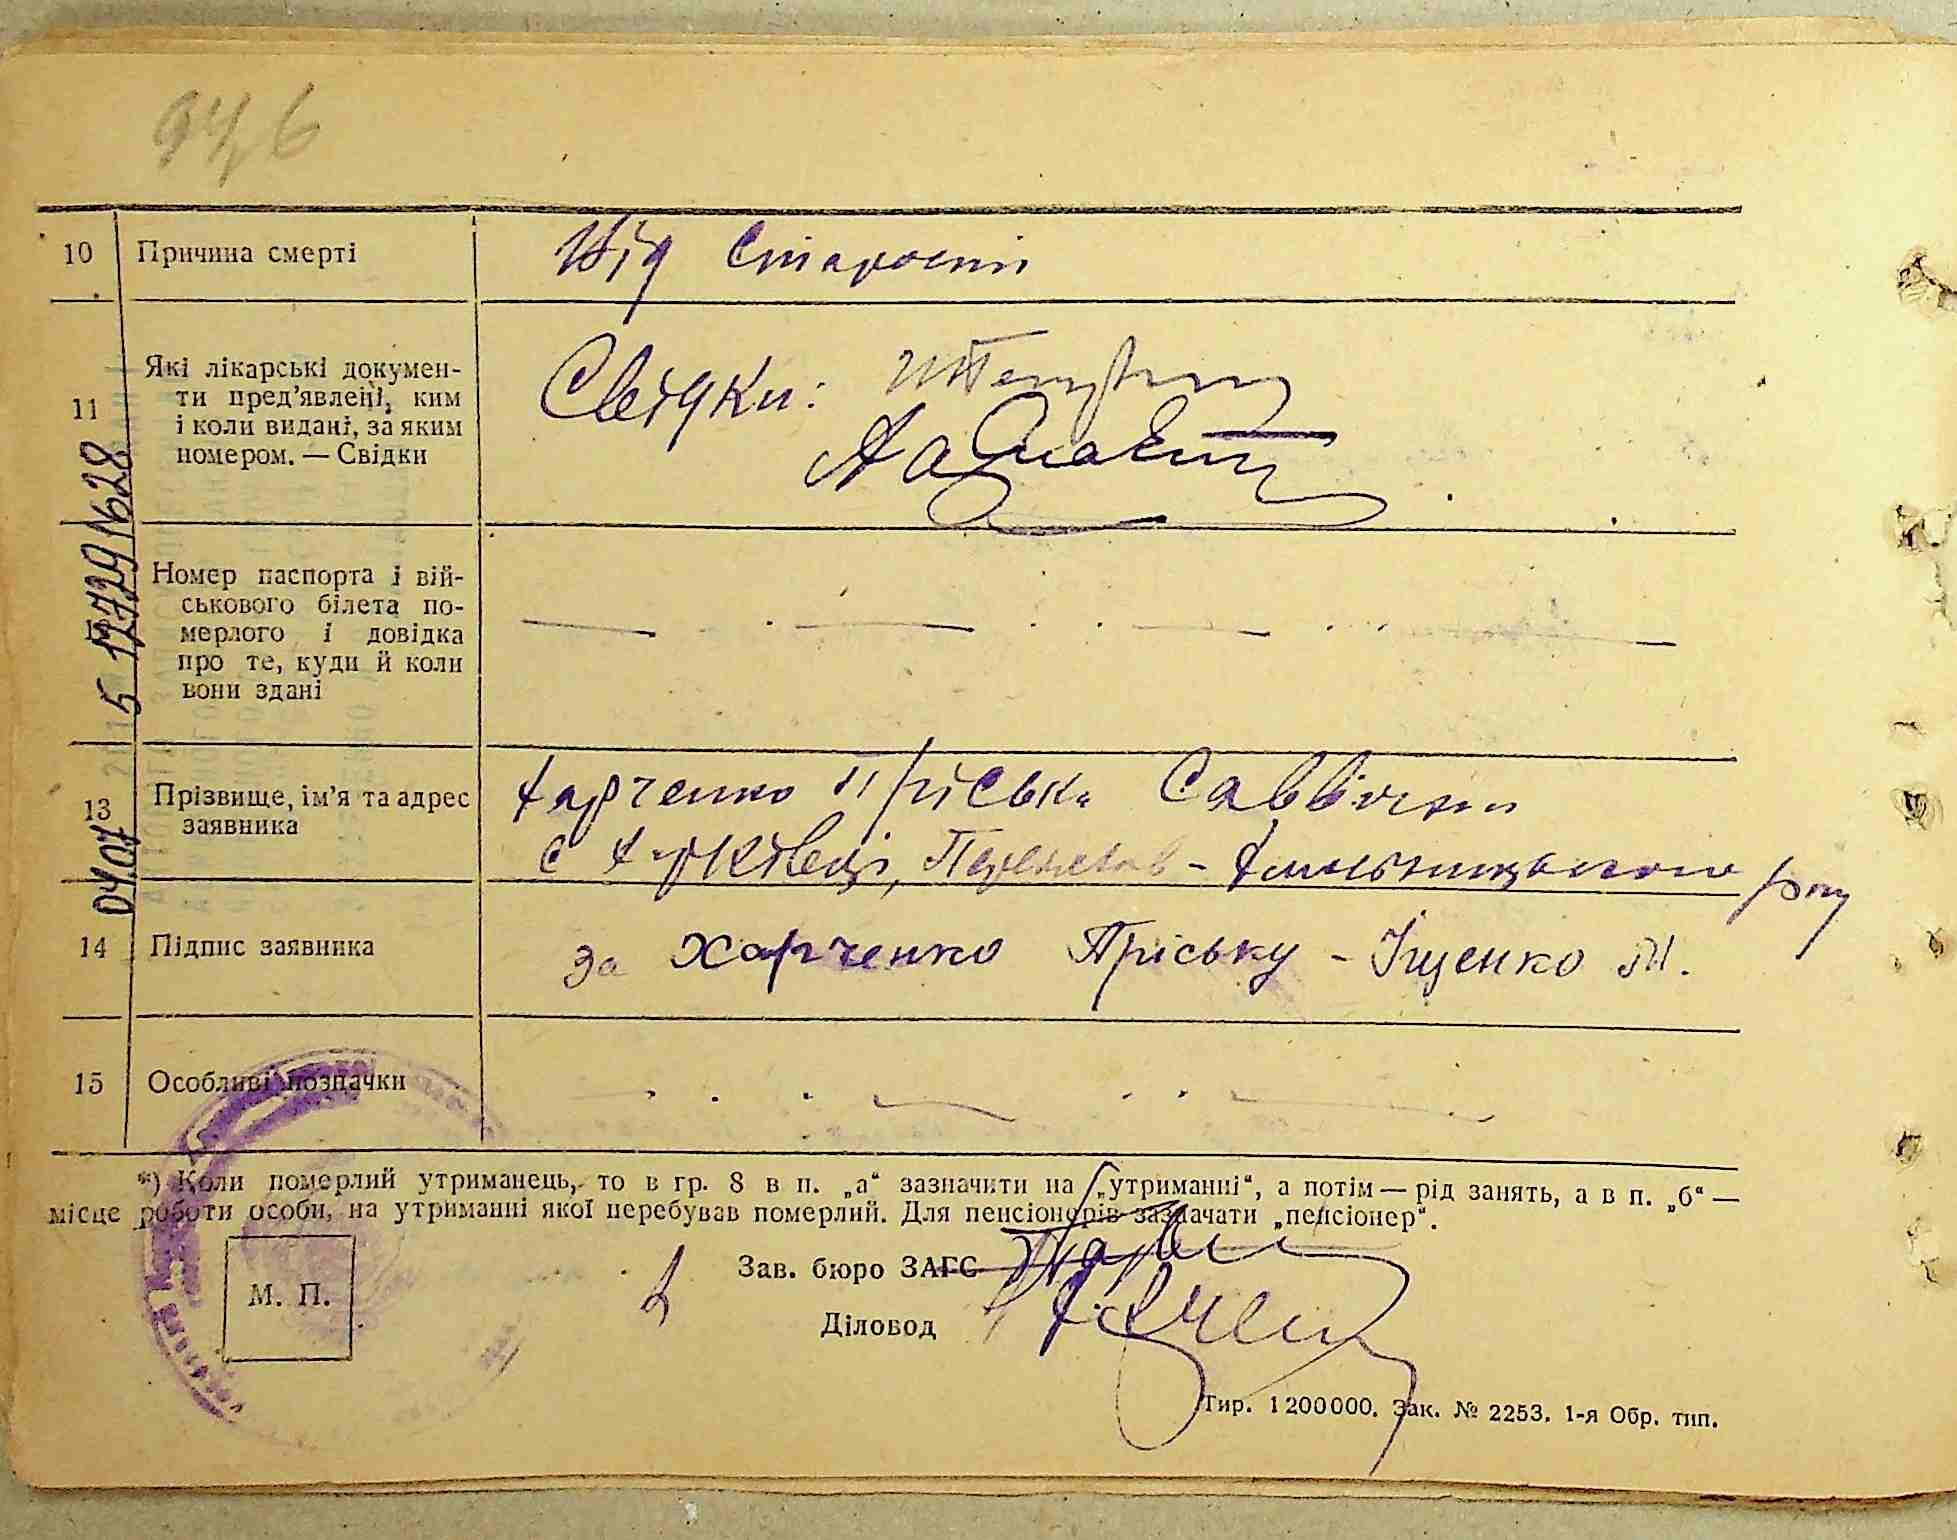 946
10 Причина смерті Від старости
11 Які лікарські докумен-
ти пред’явлені, ким
і коли видані, за яким
номером. — Свідки
Свідки:
Номер паспорта і вій-
ськового білета по-
мерлого і довідка
про те, куди й коли
вони здані
13 Прізвище, ім’я та адрес
заявника
Харченко Пріська Саввічна
с Харківці, Переяслав-Хмельницького р-ну
14 Підпис заявника за Харченко Пріську - Іщенко М.
15 Особливі позначки
*) Коли померлий утриманець, то в гр. 8 в п. „а“ зазначити на „утриманні“, а потім — рід занять, а в п. „б“ —
місце роботи особи, на утриманні якої перебував померлий. Для пенсіонерів зазначати „пенсіонер“.
Зав. бюро ЗАГС
М. П.
Діловод
Тир. 1 200 000. Зак. № 2253. 1-я Обр. тип.